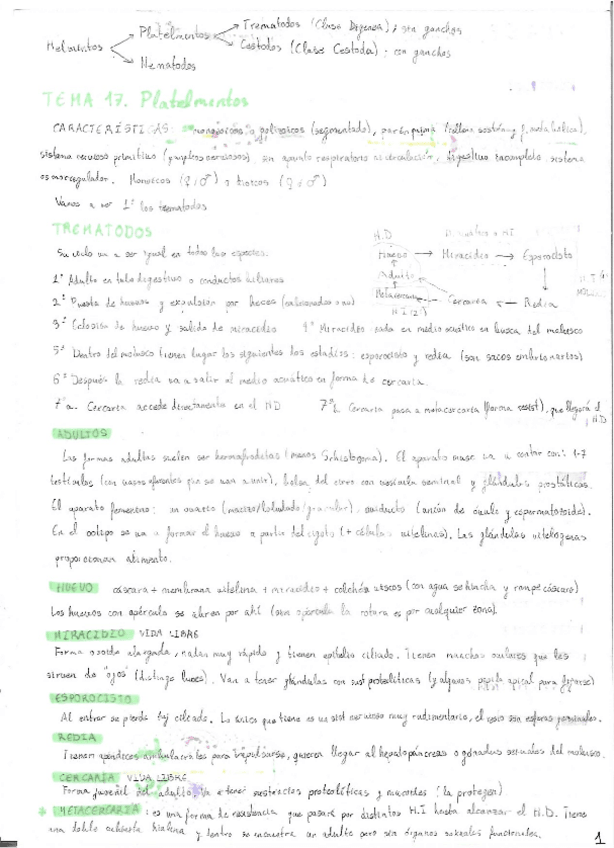 Helmintos
Platelmintos
Nematodos
Trematodos (Clase Digenea); sin ganchos
Cestodos (Clase Cestoda); con ganchos
TEMA 17. Platelmintos
CARACTERÍSTICAS: monozoicos o polizoicos (segmentado), parénquima (rellena sostén y f. metabólica),
sistema nervioso primitivo (ganglios nerviosos), sin aparato respiratorio ni circulación, digestivo incompleto, sistema
osmorregulador. Monoicos (♀ ♂) o dioicos (♀ ♂)
Vamos a ver 1º los trematodos
TREMATODOS
Su ciclo va a ser igual en todas las especies:
H.D
Huevo → Miracidio → Esporocisto
Adulto
Metacercaria ← Cercaria ← Redia
H I (2º)
1º Adulto en tubo digestivo o conductos biliares
2º Puesta de huevos y expulsión por heces (embrionados o no)
3º Eclosión de huevo y salida de miracidio 4º Miracidio nada en medio acuático en busca del molusco
5º Dentro del molusco tienen lugar los siguientes los estadios: esporocisto y redia (son sacos embrionarios)
6º Después la redia va a salir al medio acuático en forma de cercaria.
7ºa. Cercaria accede directamente en el HD 7ºb. Cercaria pasa a metacercaria (forma resist), que llegará al HD
ADULTOS
Las formas adultas suelen ser hermafroditas (menos Schistosoma). El aparato masc va a contar con: 1-7
testículos (con vasos eferentes que se van a unir), bolsa del cirro con vesícula seminal y glándulas prostáticas.
El aparato femenino: un ovario (macizo/lobulado/), oviducto (unión de óvulo y espermatozoide).
En el ootipo se va a formar el huevo a partir del cigoto (+ células vitelinas). Las glándulas vitelógenas
proporcionan alimento.
HUEVO cáscara + membrana vitelina + miracidio + colchón viscoso (con agua se hincha y rompe cáscara)
Los huevos con opérculo se abren por ahí (sin opérculo la rotura es por cualquier zona).
MIRACIDIO VIDA LIBRE
Forma ovoide alargada, nadan muy rápido y tienen epitelio ciliado. Tienen manchas oculares que les
sirven de "ojos" (distingue luces). Van a tener glándulas con sust proteolíticas (y algunos papila apical para fijarse)
ESPOROCISTO
Al entrar se pierde tej ciliado. Lo único que tiene es un sist nervioso muy rudimentario, el resto son esferas germinales.
REDIA
Tienen apéndices ambulacrales para impulsarse, quieren llegar al hepatopáncreas o gónadas sexuales del molusco.
CERCARIA VIDA LIBRE
Forma juvenil del adulto, va a tener sustancias proteolíticas y mucoides (la protegen)
METACERCARIA: es una forma de resistencia que pasará por distintos H.I hasta alcanzar el H.D. Tiene
una doble cubierta hialina y dentro se encuentra un adulto pero sin órganos sexuales funcionales.
1